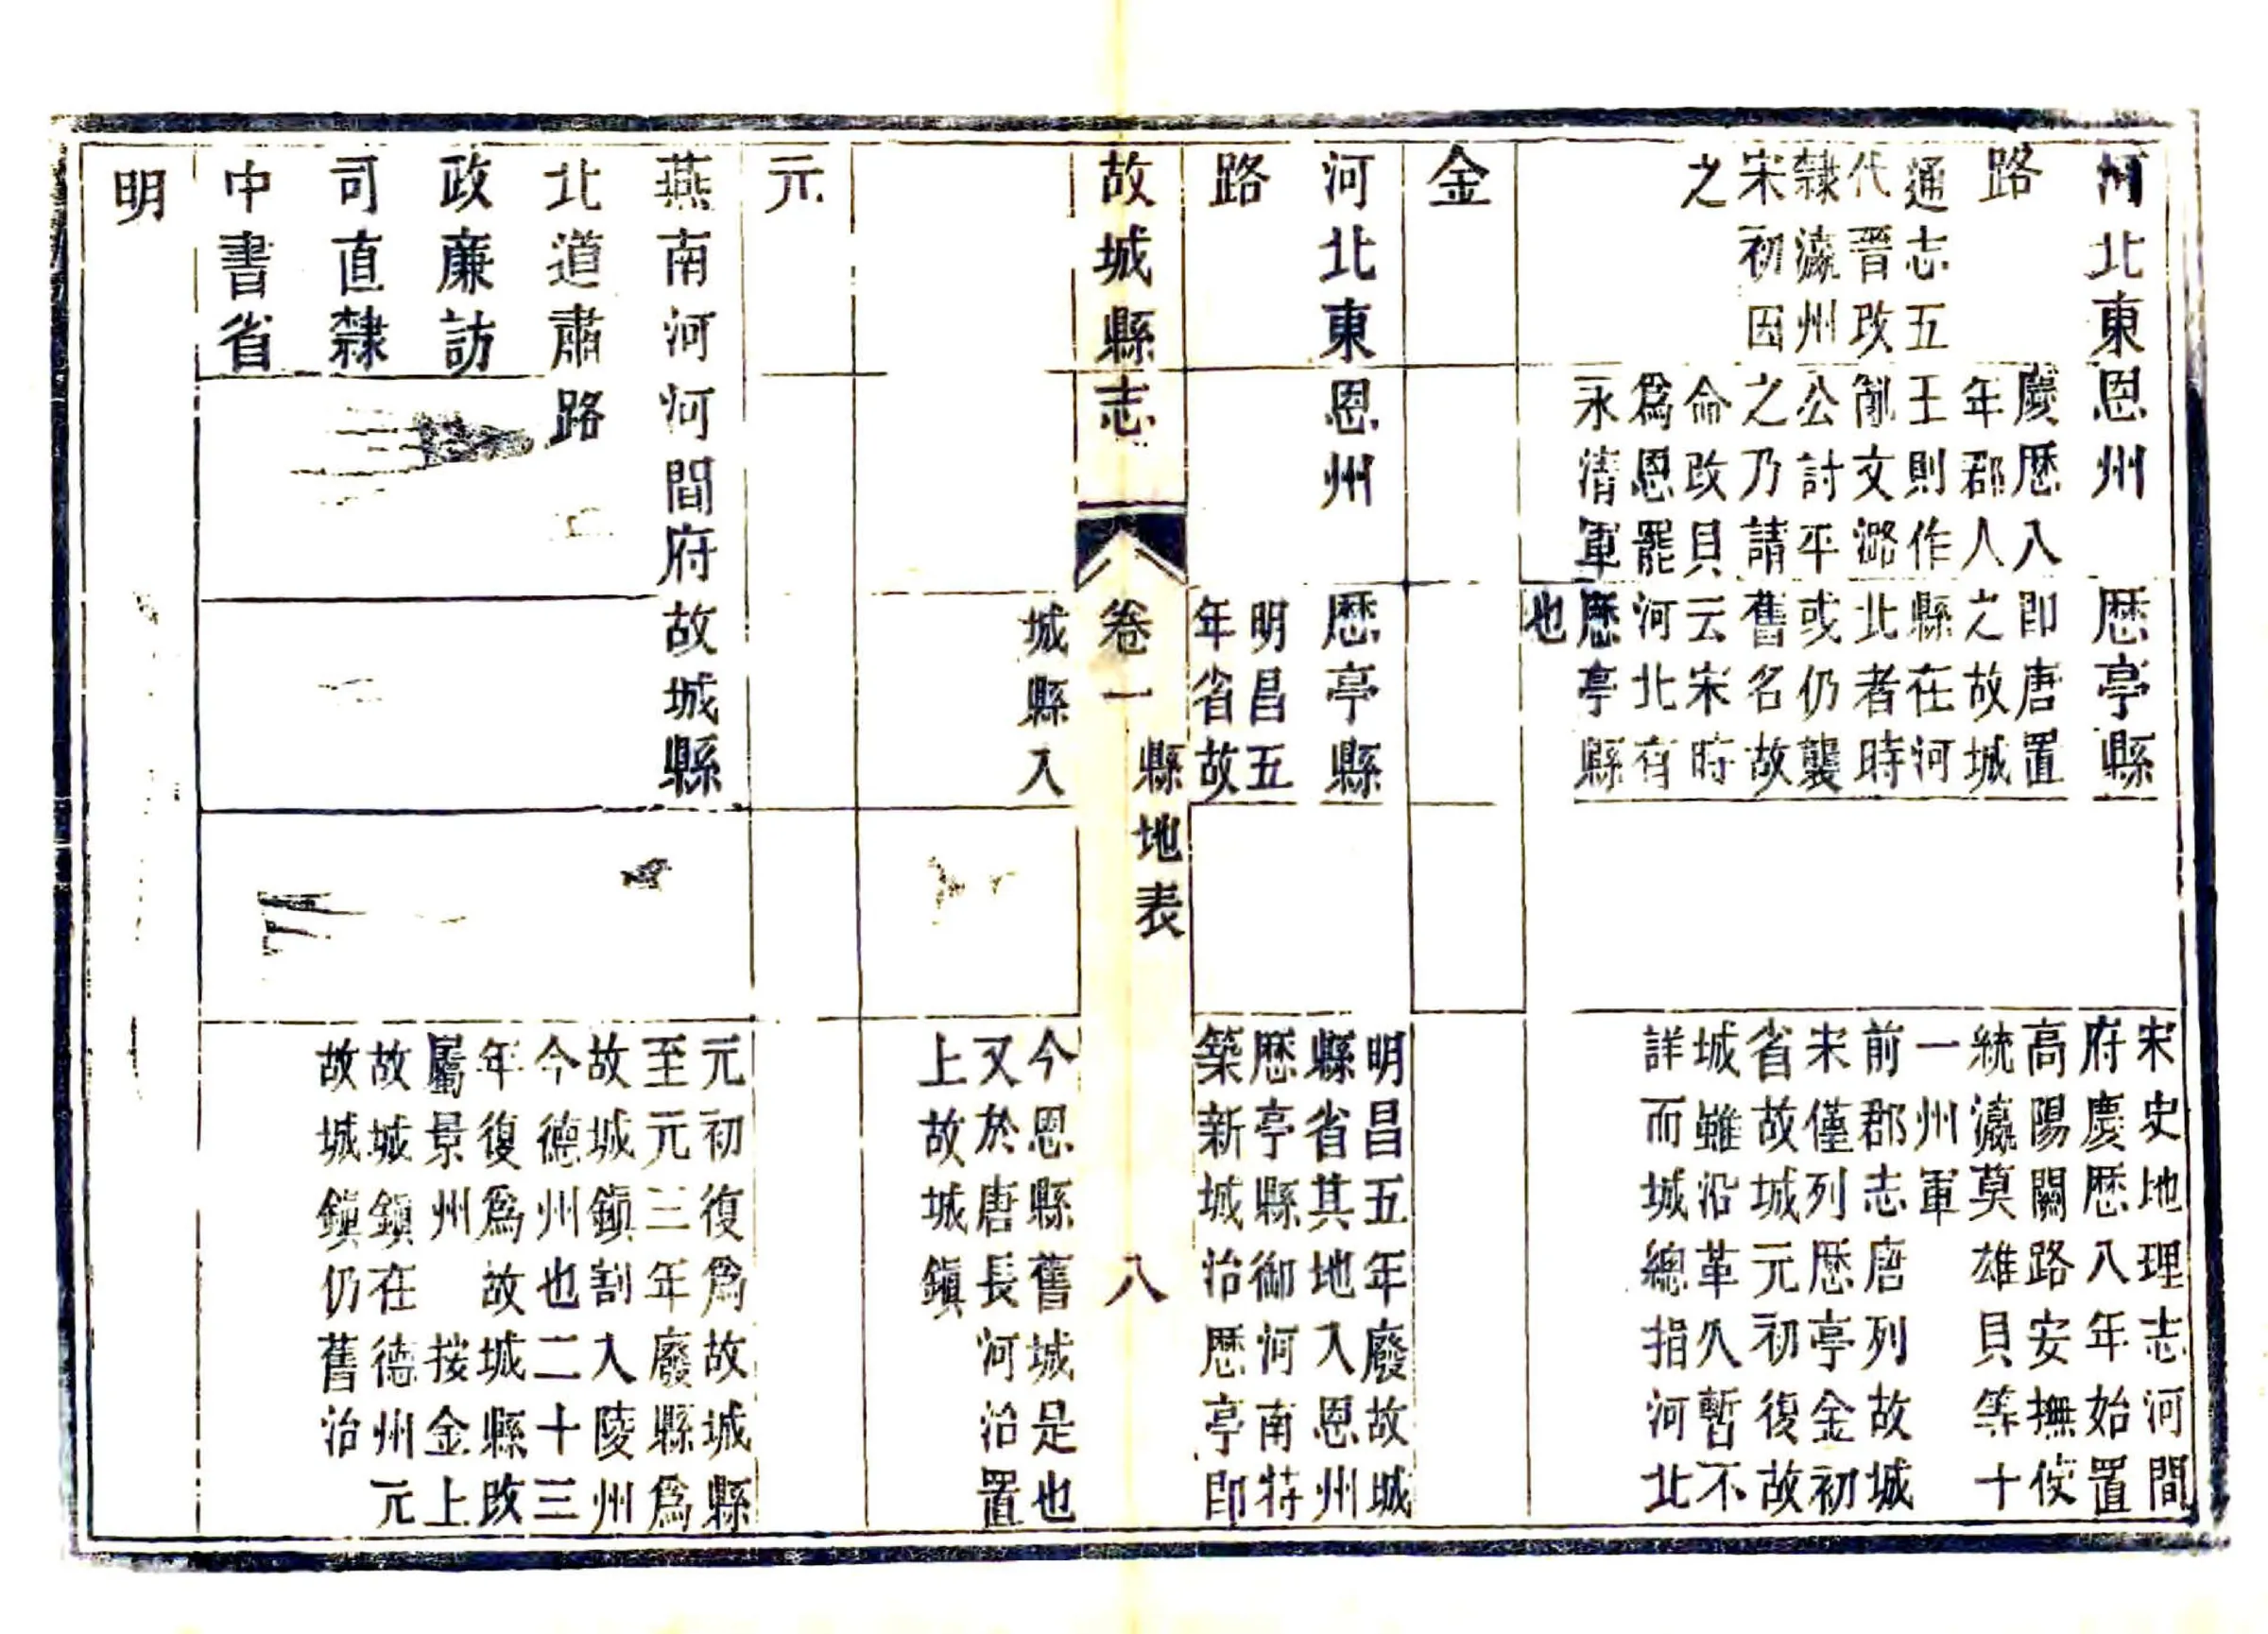 河北東
路
通志五
代晉改
隸瀛州
宋初因
之
恩州
慶厯八
年郡人
王則作
亂文潞
公討平
之乃請
命改貝
爲恩罷
永清軍
厯亭縣
即唐置
之故城
縣在河
北者時
或仍襲
舊名故
云宋時
河北有
厯亭縣
也
宋史地理志河間
府慶厯八年始置
高陽關路安撫使
統瀛莫雄貝等十
一州軍
前郡志唐列故城
宋僅列厯亭金初
省故城元初復故
城雖沿革久暫不
詳而城總指河北
金
河北東
路
恩州
厯亭縣
明昌五
年省故
明昌五年廢故城
縣省其地入恩州
厯亭縣御河南特
築新城治厯亭即
故城縣志
卷一
縣地表
八
城縣入
今恩縣舊城是也
又於唐長河治置
上故城鎭
元
燕南河
北道肅
政廉訪
司直隸
中書省
河間府
路
故城縣
元初復爲故城縣
至元三年廢縣爲
故城鎭割入陵州
今德州也二十三
年復爲故城縣改
屬景州 按金上
故城鎭在德州元
故城鎭仍舊治
明